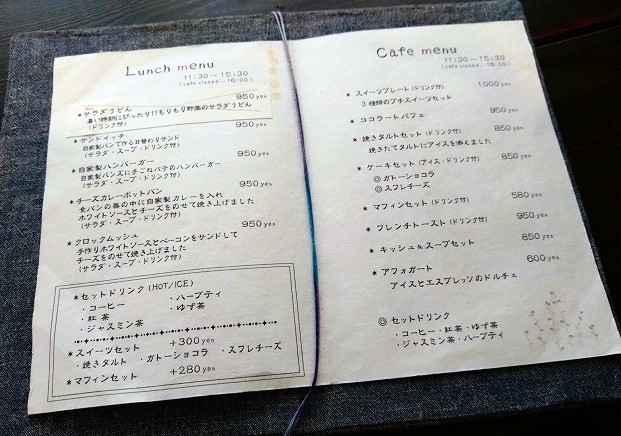 Lunch menu
11:30 ～ 15:30
(cafe closed … 16:00)
950 yen
＊サラダうどん
暑い時期にぴったり!!もりもり野菜のサラダうどん
(ドリンク付)
950 yen
＊サンドイッチ
自家製パンで作る日替わりサンド
(サラダ・スープ・ドリンク付)
950 yen
＊自家製ハンバーガー
自家製バンズに手ごねパテのハンバーガー
(サラダ・スープ・ドリンク付)
950 yen
＊チーズカレーポットパン
食パンの器の中に自家製カレーを入れ
ホワイトソースとチーズをのせて焼き上げました
(サラダ・スープ・ドリンク付)
950 yen
＊クロックムッシュ
手作りホワイトソースとベーコンをサンドして
チーズをのせて焼き上げました
(サラダ・スープ・ドリンク付)
＊セットドリンク (HOT/ICE)
・コーヒー ・ハーブティ
・紅茶 ・ゆず茶
・ジャスミン茶
＊スイーツセット +300yen
・焼きタルト ・ガトーショコラ ・スフレチーズ
＊マフィンセット +280yen
Cafe menu
11:30 ～ 15:30
(cafe closed … 16:00)
＊スイーツプレート (ドリンク付) 1,000 yen
3種類のプチスイーツセット
＊ココラートパフェ 950 yen
＊焼きタルトセット (ドリンク付) 850 yen
焼きたてタルトにアイスを添えました
＊ケーキセット (アイス・ドリンク付) 850 yen
◎ガトーショコラ
◎スフレチーズ
＊マフィンセット (ドリンク付) 580 yen
＊フレンチトースト (ドリンク付) 950 yen
＊キッシュ＆スープセット 850 yen
＊アフォガート 600 yen
アイスとエスプレッソのドルチェ
◎ セットドリンク
・コーヒー・紅茶・ゆず茶
・ジャスミン茶・ハーブティ